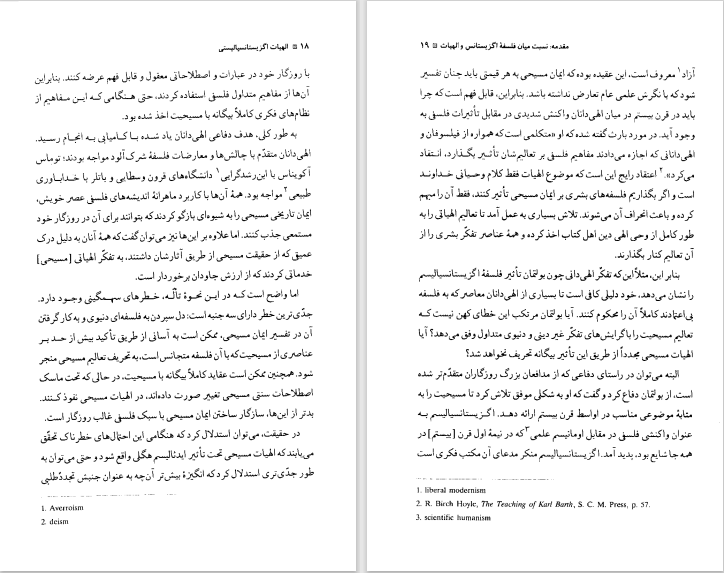 ۱۸ ▣ الهیات اگزیستانسیالیستی
با روزگار خود در عبارات و اصطلاحاتی معقول و قابل فهم عرضه کنند. بنابراین
آن‌ها از مفاهیم متداول فلسفی استفاده کردند، حتی هنگامی که این مفاهیم از
نظام‌های فکری کاملاً بیگانه با مسیحیت اخذ شده بود.
به طور کلی، هدف دفاعی الهی‌دانان یاد شده با کامیابی به انجام رسید.
الهی‌دانان متقدّم با چالش‌ها و معارضات فلسفهٔ شرک‌آلود مواجه بودند؛ توماس
آکویناس با ابن‌رشدگرایی۱ دانشگاه‌های قرون وسطایی و باتلر با خداباوری
طبیعی۲ مواجه بود. همهٔ آن‌ها با کاربرد ماهرانهٔ اندیشه‌های فلسفی عصر خویش،
ایمان تاریخی مسیحی را به شیوه‌ای بازگو کردند که بتوانند برای آن در روزگار خود
مستمعی جذب کنند. اما علاوه بر این‌ها نیز می‌توان گفت که همهٔ آنان به دلیل درک
عمیق که از حقیقت مسیحی از طریق آثارشان داشتند، به تفکّر الهیاتی [مسیحی]
خدماتی کردند که از ارزش جاودان برخوردار است.
اما واضح است که در این نحوهٔ تألّه، خطرهای سهمگینی وجود دارد.
جدّی‌ترین خطر دارای سه جنبه است: دل سپردن به فلسفه‌ای دنیوی و به کار گرفتن
آن در تفسیر ایمان مسیحی، ممکن است به آسانی از طریق تأکید بیش از حد بر
عناصری از مسیحیت که با آن فلسفه متجانس است، به تحریف تعالیم مسیحی منجر
شود. همچنین ممکن است عقاید کاملاً بیگانه با مسیحیت، در حالی که تحت ماسک
اصطلاحات سنتی مسیحی تغییر صورت داده‌اند، در الهیات مسیحی نفوذ کنند.
بدتر از این‌ها، سازگار ساختن ایمان مسیحی با سبک فلسفی غالب روزگار است.
در حقیقت، می‌توان استدلال کرد که هنگامی این احتمال‌های خطرناک تحقّق
می‌یابند که الهیات مسیحی تحت تأثیر ایدئالیسم هگلی واقع شود و حتی می‌توان به
طور جدّی‌تری استدلال کرد که انگیزهٔ بیش‌تر آن‌چه به عنوان جنبش تجدّدطلبی
1. Averroism
2. deism
مقدمه: نسبت میان فلسفهٔ اگزیستانس و الهیات ▣ ۱۹
آزاد۱ معروف است، این عقیده بوده که ایمان مسیحی به هر قیمتی باید چنان تفسیر
شود که با نگرش علمی عام تعارض نداشته باشد. بنابراین، قابل فهم است که چرا
باید در قرن بیستم در میان الهی‌دانان واکنش شدیدی در مقابل تأثیرات فلسفی به
وجود آید. در مورد بارت گفته شده که او «متکلمی است که همواره از فیلسوفان و
الهی‌دانانی که اجازه می‌دادند مفاهیم فلسفی بر تعالیم‌شان تأثیر بگذارد، انتقاد
می‌کرد».۲ اعتقاد رایج این است که موضوع الهیات فقط کلام وحیانی خداوند
است و اگر بگذاریم فلسفه‌های بشری بر ایمان مسیحی تأثیر کنند، فقط آن را مبهم
کرده و باعث انحراف آن می‌شوند. تلاش بسیاری به عمل آمد تا تعالیم الهیاتی را به
طور کامل از وحی الهی دین اهل کتاب اخذ کرده و همهٔ عناصر تفکّر بشری را از
آن تعالیم کنار بگذارند.
بنابر این، مثلاً این که تفکّر الهی‌دانی چون بولتمان تأثیر فلسفهٔ اگزیستانسیالیسم
را نشان می‌دهد، خود دلیلی کافی است تا بسیاری از الهی‌دانان معاصر که به فلسفه
بی‌اعتمادند کاملاً آن را محکوم کنند. آیا بولتمان مرتکب این خطای کهن نیست که
تعالیم مسیحیت را با گرایش‌های تفکّر غیر دینی و دنیوی متداول وفق می‌دهد؟ آیا
الهیات مسیحی مجدداً از طریق این تأثیر بیگانه تحریف نخواهد شد؟
البته می‌توان در راستای دفاعی که از مدافعان بزرگ روزگاران متقدّم‌تر شده
است، از بولتمان دفاع کرد و گفت که او به شکلی موفق تلاش کرد تا مسیحیت را به
مثابهٔ موضوعی مناسب در اواسط قرن بیستم ارائه دهد. اگزیستانسیالیسم به
عنوان واکنشی فلسفی در مقابل اومانیسم علمی۳ که در نیمهٔ اول قرن [بیستم] در
همه جا شایع بود، پدید آمد. اگزیستانسیالیسم منکر مدعای آن مکتب فکری است
1. liberal modernism
2. R. Birch Hoyle, The Teaching of Karl Barth, S. C. M. Press, p. 57.
3. scientific humanism